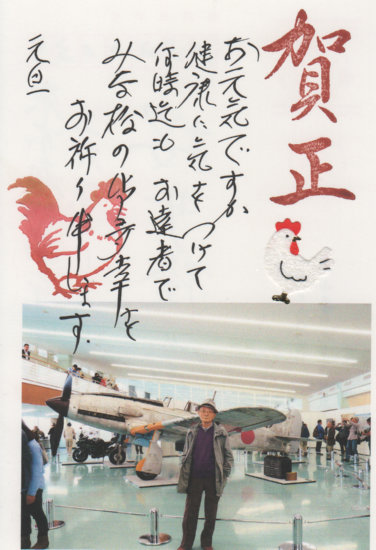 賀正
お元気ですか
健康に気をつけて
何時迄も お達者で
みな様の御多幸を
お祈り申します.
元旦